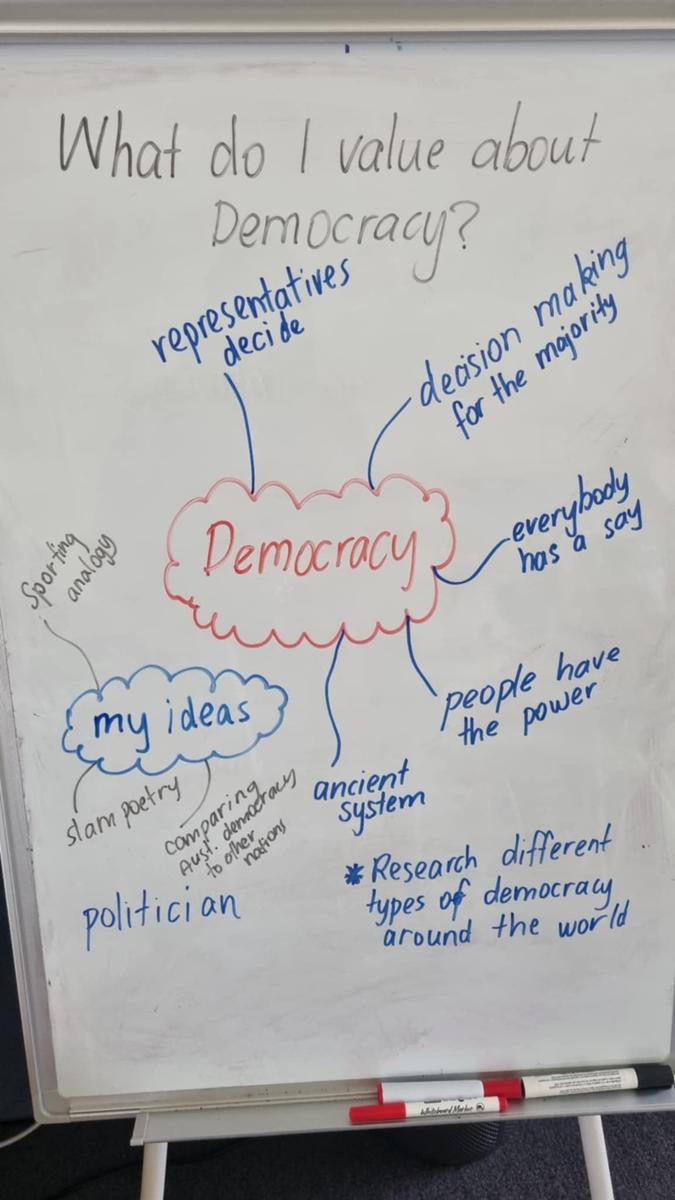 What do I value about
Democracy?
representatives
decide
decision making
for the majority
Democracy
everybody
has a say
people have
the power
ancient
system
Sporting
analogy
my ideas
slam poetry
comparing
Aust. democracy
to other
nations
politician
* Research different
types of democracy
around the world
Whiteboard Marker